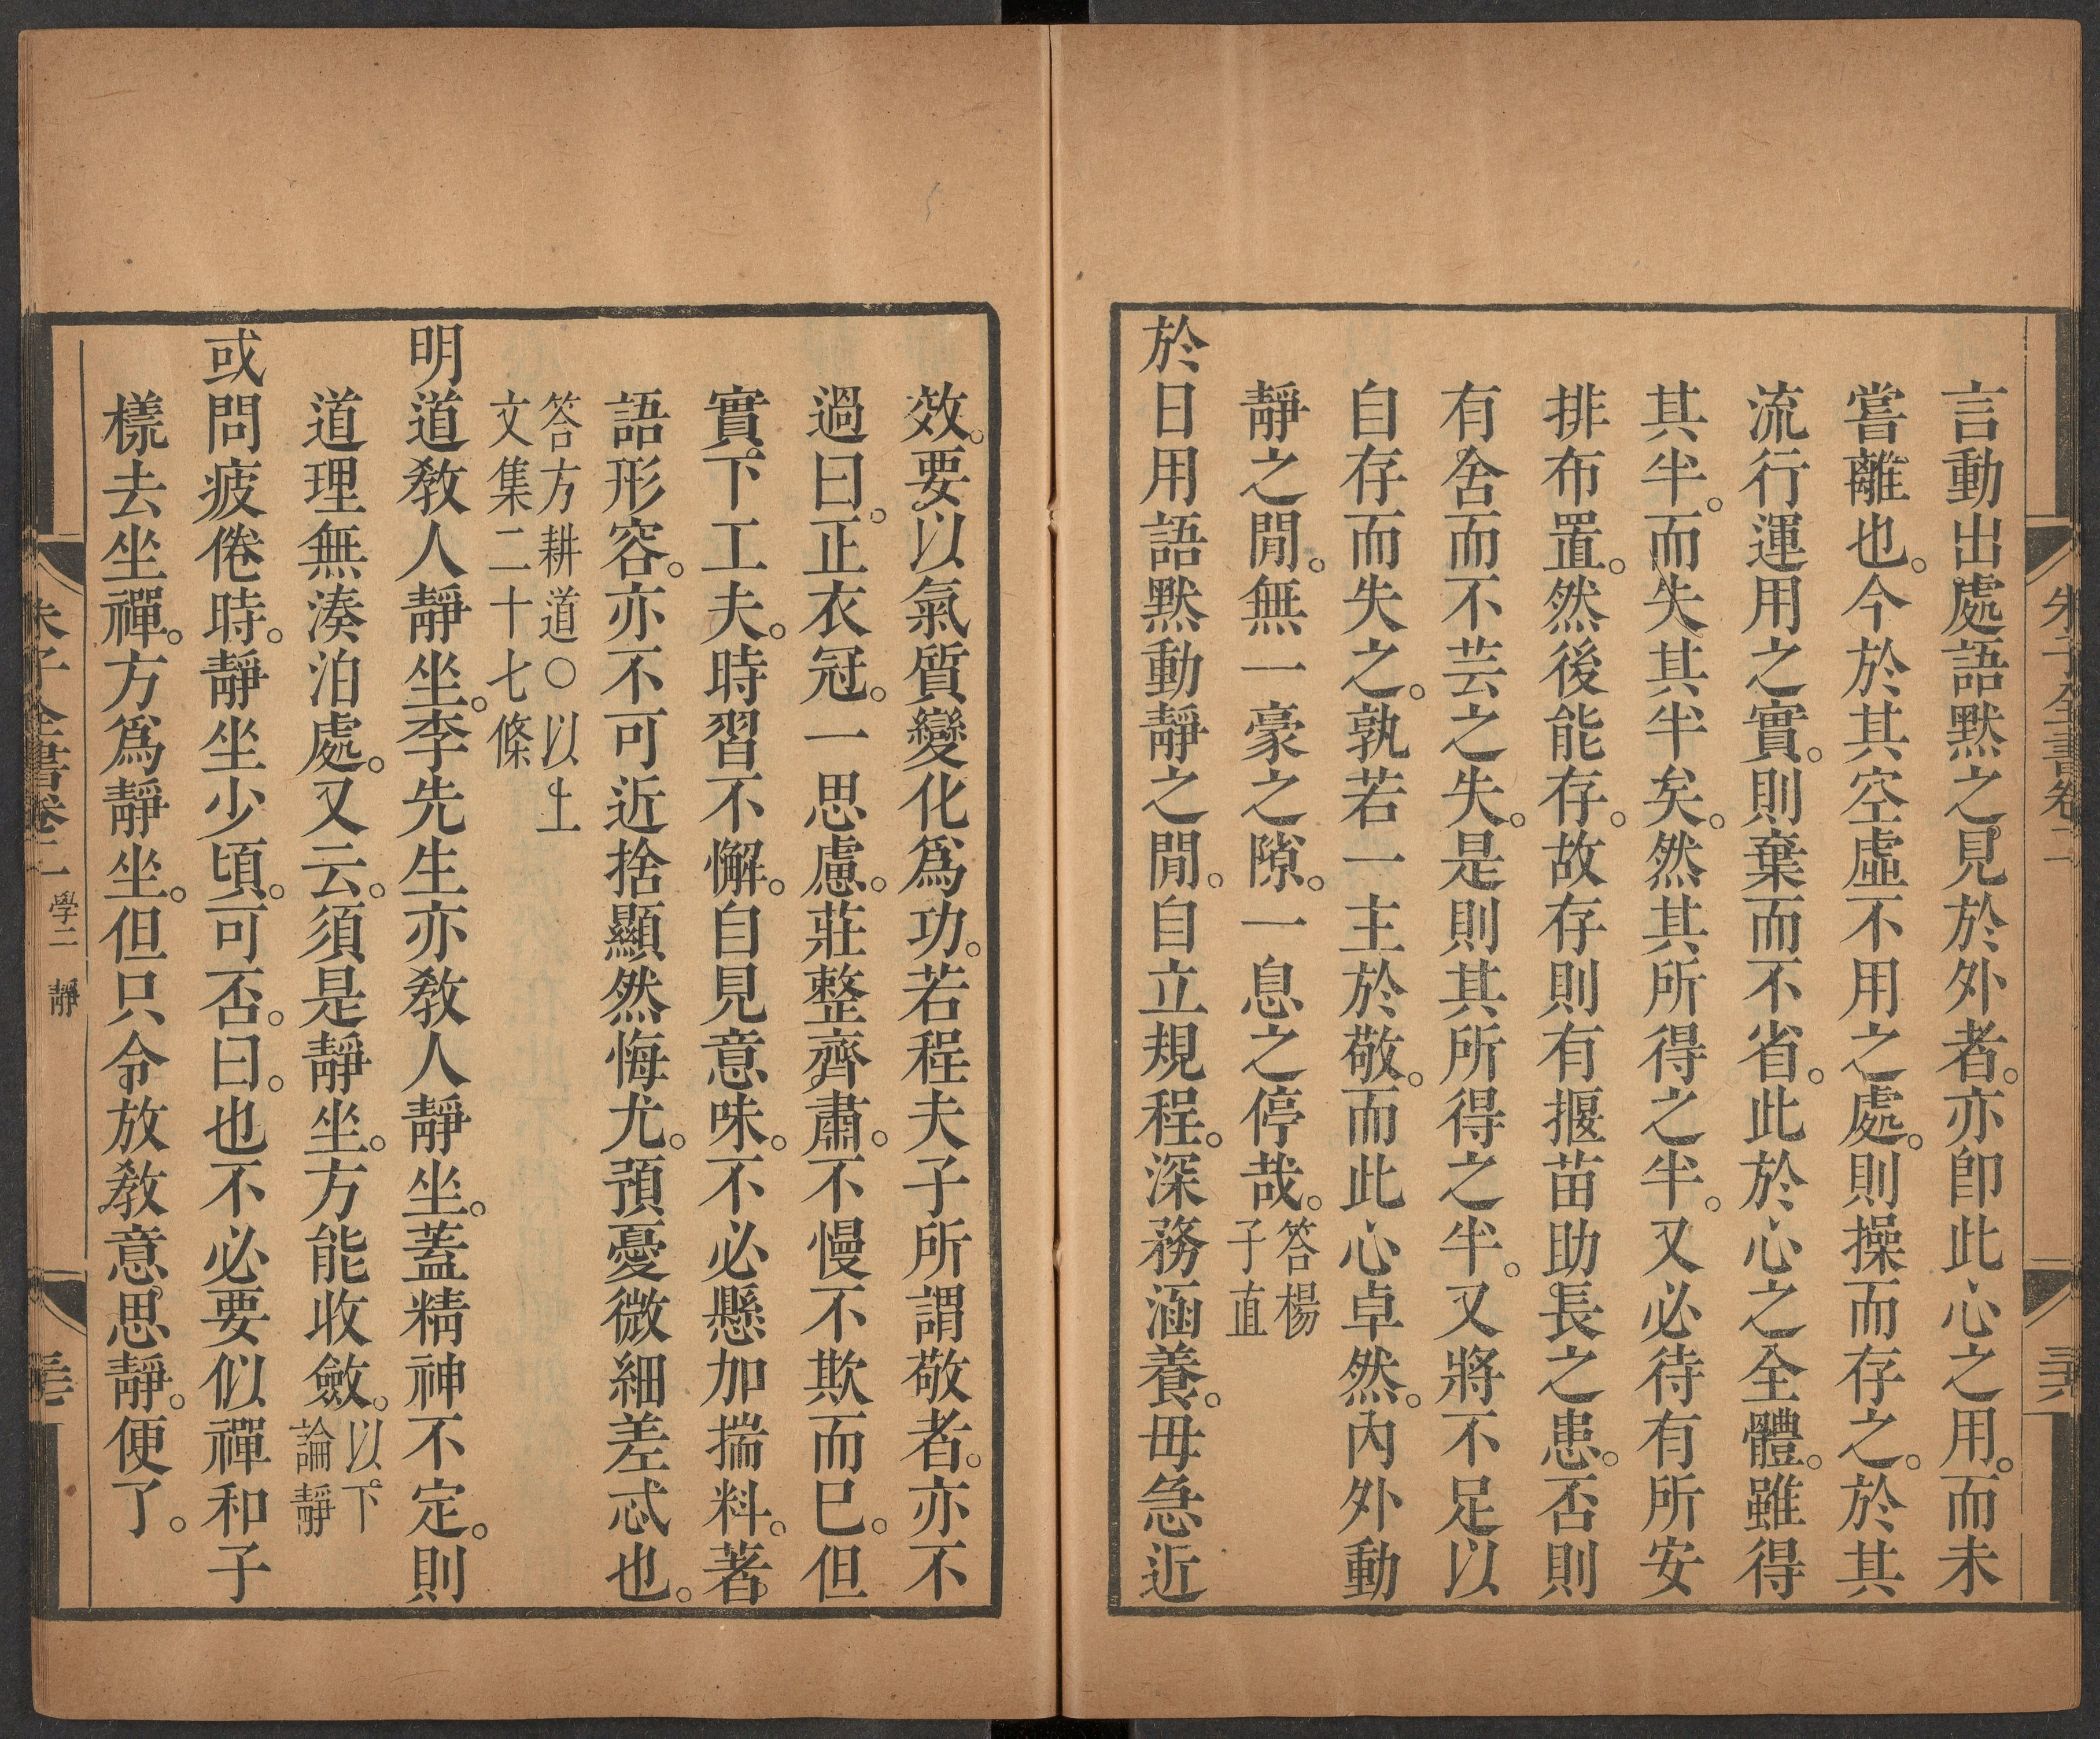 朱子全書卷二
三六
言動出處語默之見於外者。亦卽此心之用。而未
嘗離也。今於其空虛不用之處。則操而存之。於其
流行運用之實。則棄而不省。此於心之全體。雖得
其半。而失其半矣。然其所得之半。又必待有所安
排布置。然後能存。故存則有揠苗助長之患。否則
有舍而不芸之失。是則其所得之半。又將不足以
自存而失之。孰若一主於敬。而此心卓然。內外動
靜之閒。無一豪之隙。一息之停哉。答楊子直
於日用語默動靜之閒。自立規程。深務涵養。毋急近
效。要以氣質變化爲功。若程夫子所謂敬者。亦不
過曰。正衣冠。一思慮。莊整齊肅。不慢不欺而已。但
實下工夫。時習不懈。自見意味。不必懸加揣料。著
語形容。亦不可近捨顯然悔尤。預憂微細差忒也。
答方耕道○以上
文集二十七條
明道敎人靜坐。李先生亦敎人靜坐。蓋精神不定。則
道理無湊泊處。又云。須是靜坐。方能收斂。以下論靜
或問疲倦時。靜坐少頃。可否。曰。也不必要似禪和子
樣去坐禪。方爲靜坐。但只令放敎意思靜。便了。
朱子全書卷二 學二 靜